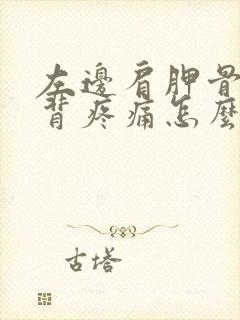 左邊肩胛骨
背疼痛怎麼
古塔